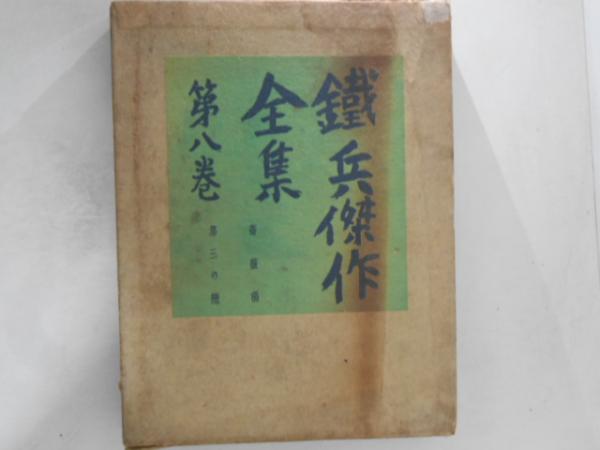 鐵兵傑作
全集
第八巻